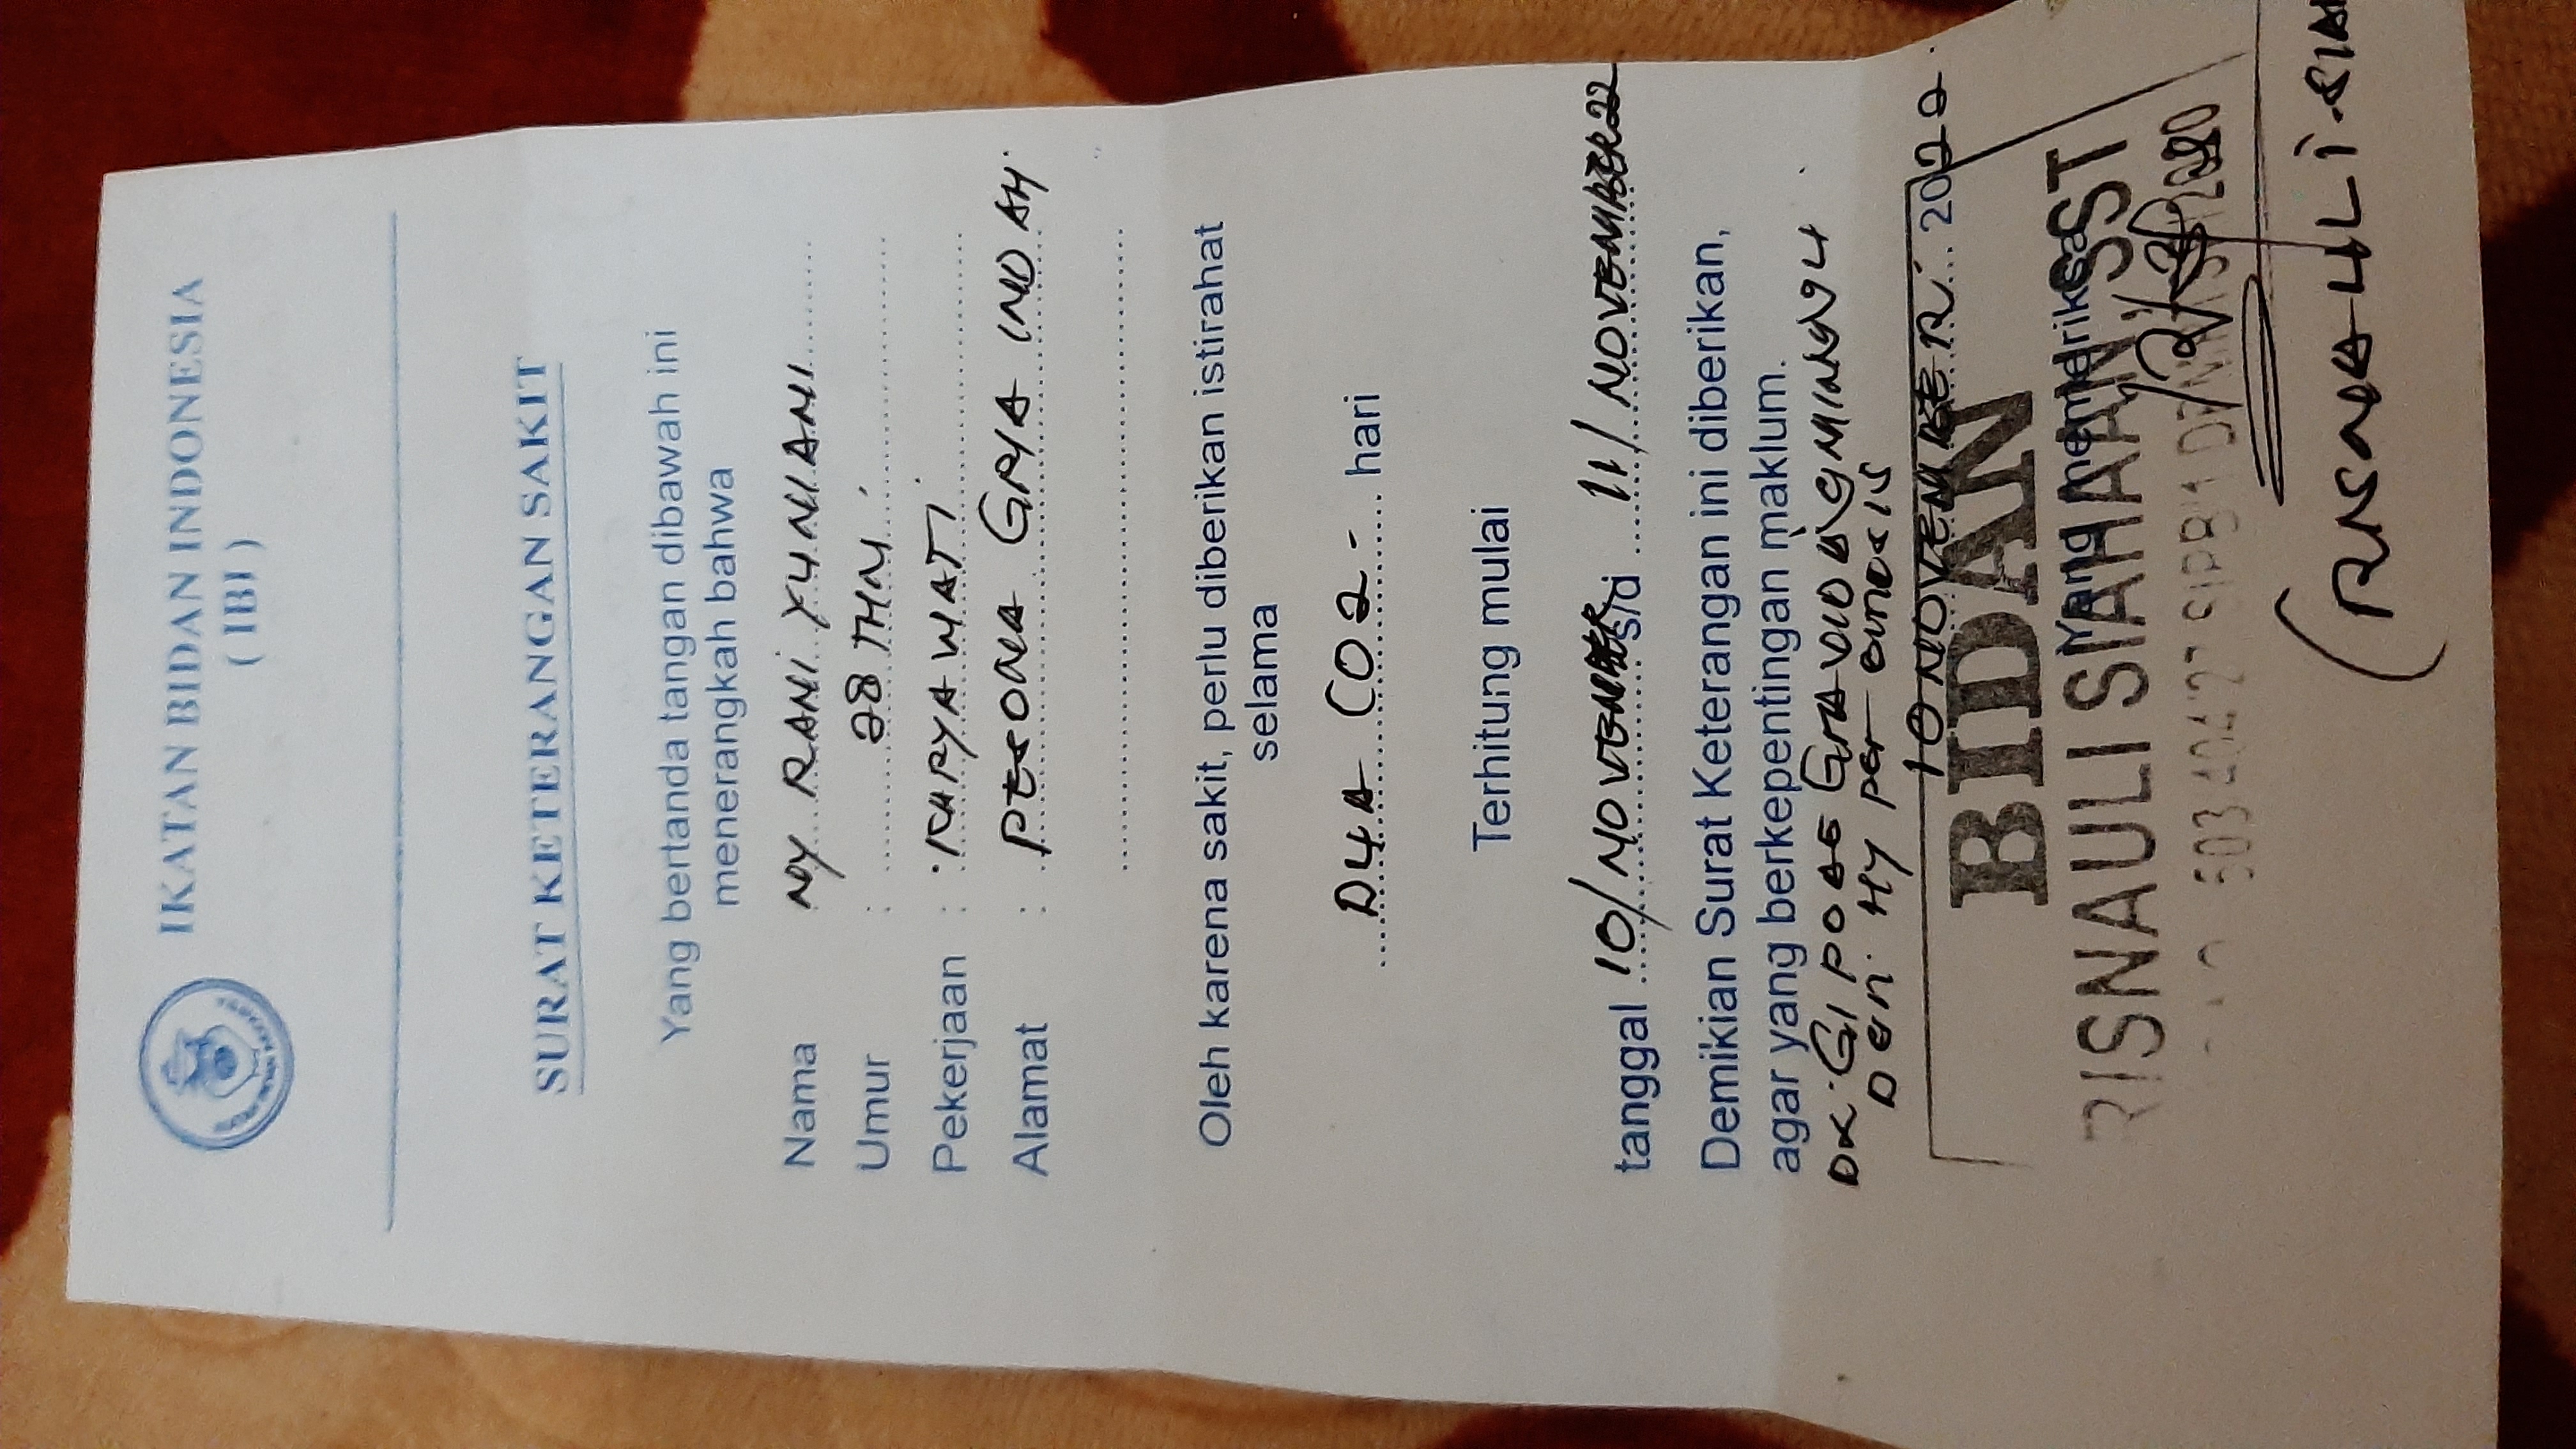 IKATAN BIDAN INDONESIA
( IBI )
SURAT KETERANGAN SAKIT
Yang bertanda tangan dibawah ini
menerangkah bahwa
Nama NY RANI YUNIANI
Umur : 28 THN
Pekerjaan : KARYAWATI
Alamat : PESONA GRIA INDAH
Oleh karena sakit, perlu diberikan istirahat
selama
DUA (02- hari
Terhitung mulai
tanggal 10/NOVEMBER s/d 11/NOVEMBER 22
Demikian Surat Keterangan ini diberikan,
agar yang berkepentingan maklum.
GI P0A0 GRAVIDA 9 MINGGU
DGN HYPER EMESIS
10 NOVEMBER 2022
BIDAN
Yang memeriksa
RISNAULI SIAHAAN, SST
(RISNAULI.SIA